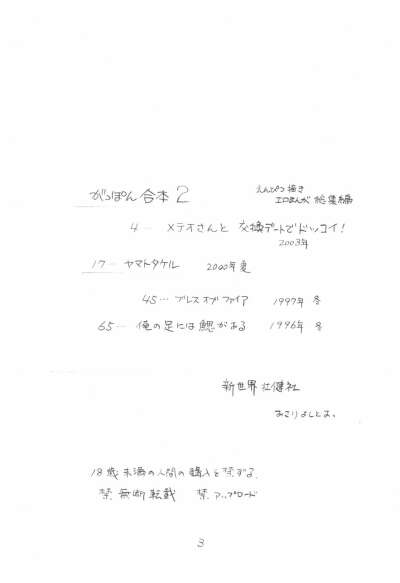 がっぽん 合本 2
えんぴつ描き
エロまんが 総集編
4… メテオさんと 交換デートでドッコイ!
2003年
17… ヤマトタケル 2000年 夏
45… ブレス オブ ファイア 1997年 冬
65… 俺の足には鰓がある 1996年 冬
新世界壮健社
あさりよしとお。
18歳未満の人間の購入を禁ずる。
禁 無断転載 禁 アップロード
3